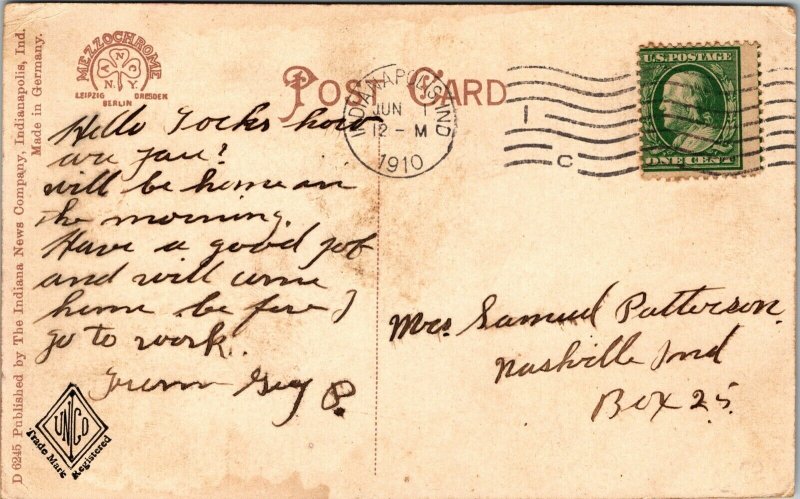 D 6245 Published by The Indiana News Company, Indianapolis, Ind.
Made in Germany.
MEZZOCHROME
A N C N.Y.
LEIPZIG DRESDEN
BERLIN
POST CARD
INDIANAPOLIS, IND
JUN 1
12 - M
1910
1
C
U.S. POSTAGE
ONE CENT
Hello how
are you?
will be home an
the morning.
Have a good job
and will come
home be fore I
go to work.
From Guy P.
Mrs. Samuel Patterson.
Nashville Ind
Box 25.
UNCO
Trade Mark Registered